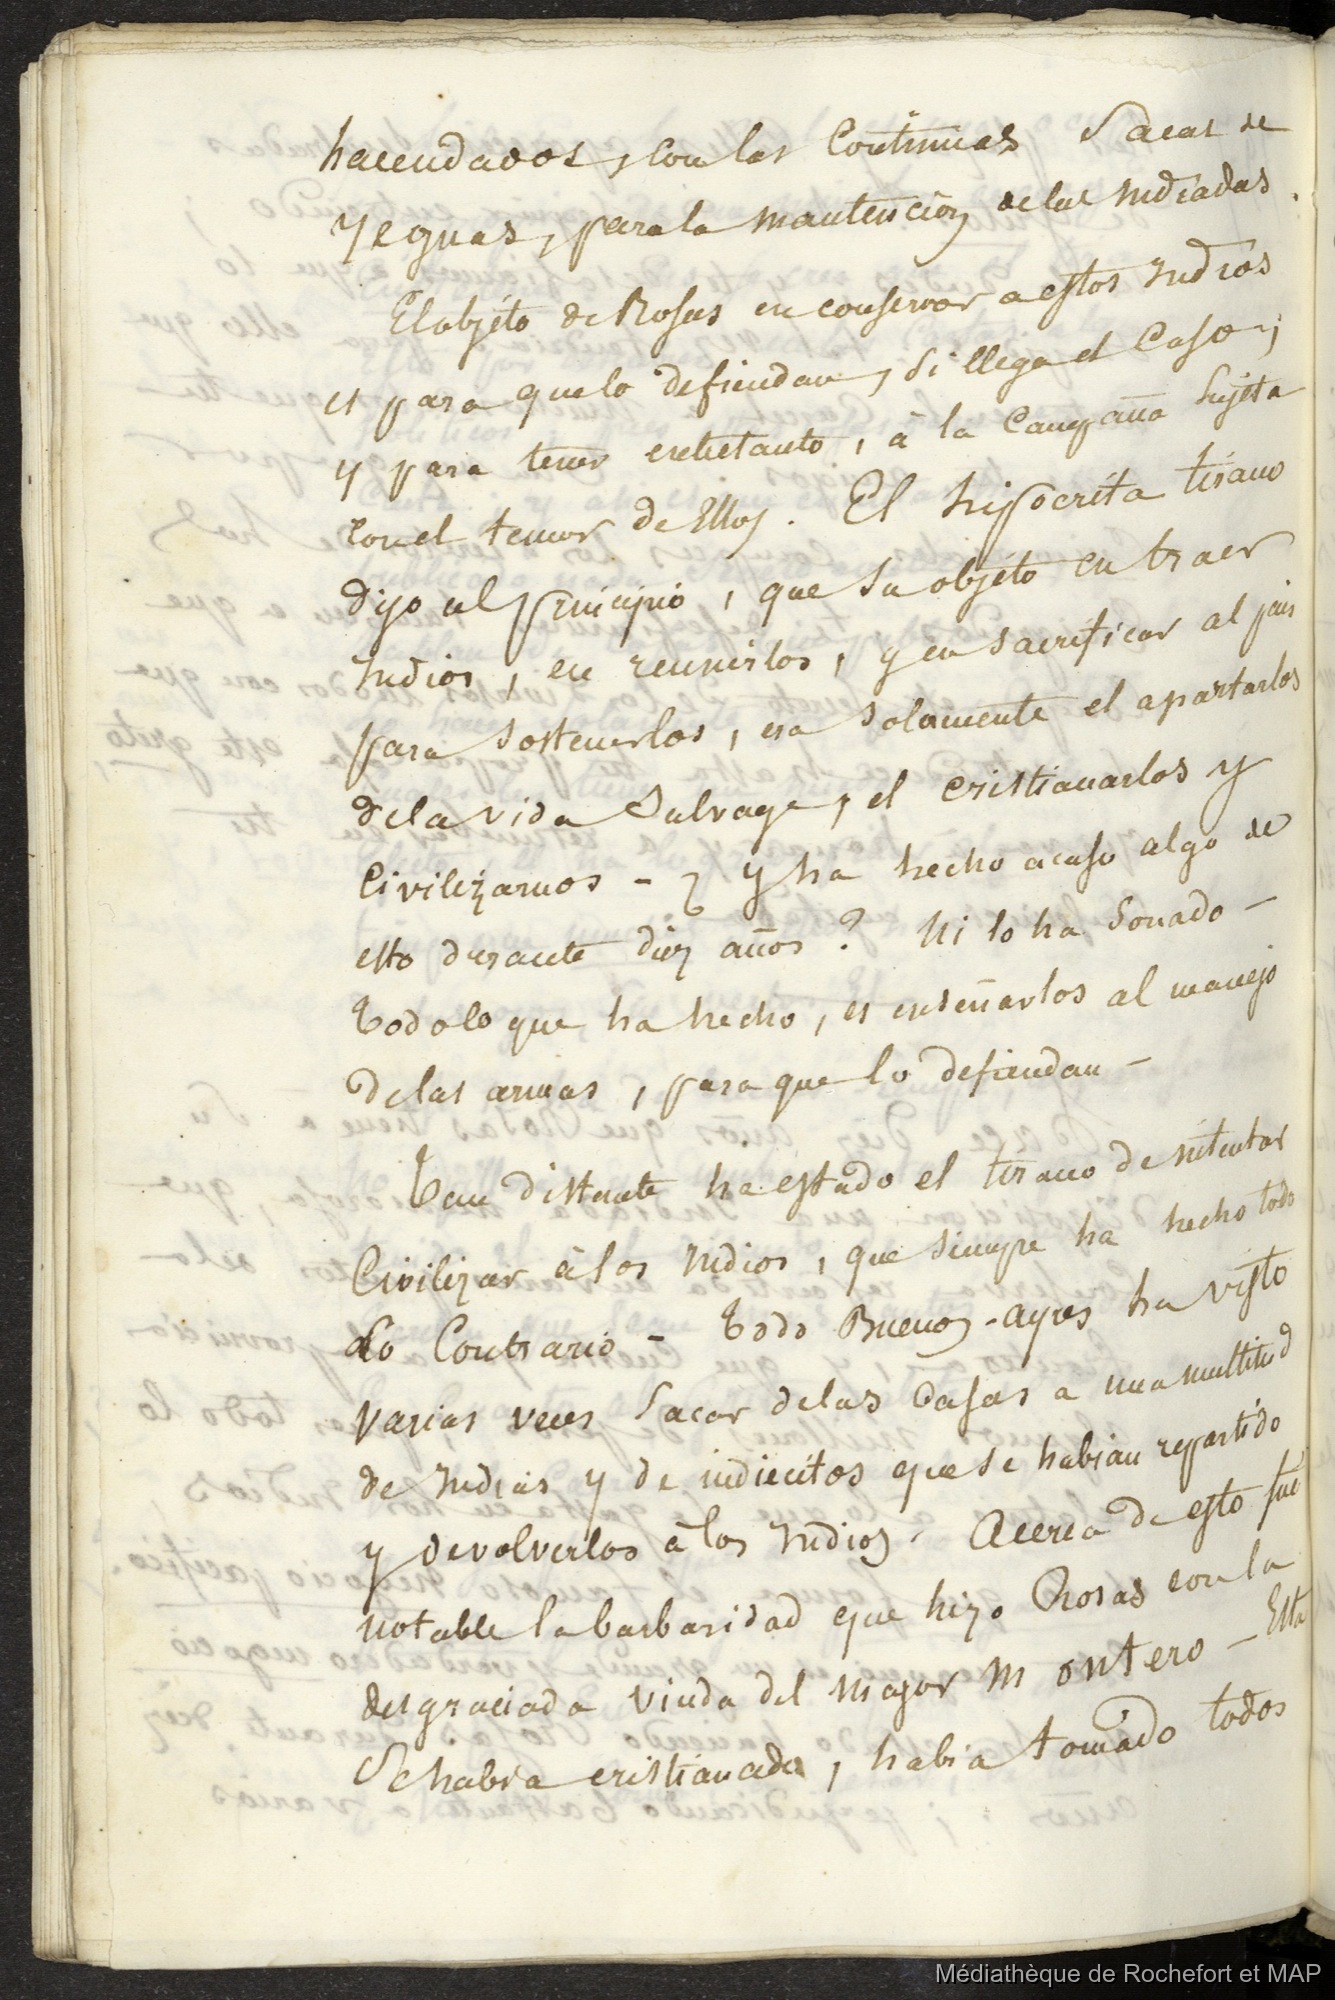 hacendados, con las Continuas Sacas de
yeguas, para la mantencion de las Indiadas.
El objéto de Rosas en conservar a estos Indios
es para que lo defiendan, si llega el Caso,;
y para tener entretanto, à la Campaña Sujeta
con el temor de Ellos. El hipocrita tirano
dijo al principio, que su objéto en traer
Indios, en reunirlos, y en sacrificar al pais
para sostenerlos, era solamente el apartarlos
de la vida Salvage, el cristianarlos y
Civilizarnos - ¿ y ha hecho acaso algo de
esto durante diez años? Ni lo ha Sonado -
Todo lo que ha hecho, es enseñarlos al manejo
de las armas, para que lo defiendan -
Tan distante ha estado el tirano de intentar
Civilizar à los Indios, que siempre ha hecho todo
lo Contrario - Todo Buenos-ayres ha visto
varias veces Sacar de las Casas a una multitud
de Indias y de indiecitos que se habian repartido
y devolverlos à los Indios. Acerca de esto fué
notable la barbaridad que hizo Rosas con la
desgraciada viuda del Mayor Montero - Esta
Se habia cristianado, habia tomado todos
Médiathèque de Rochefort et MAP